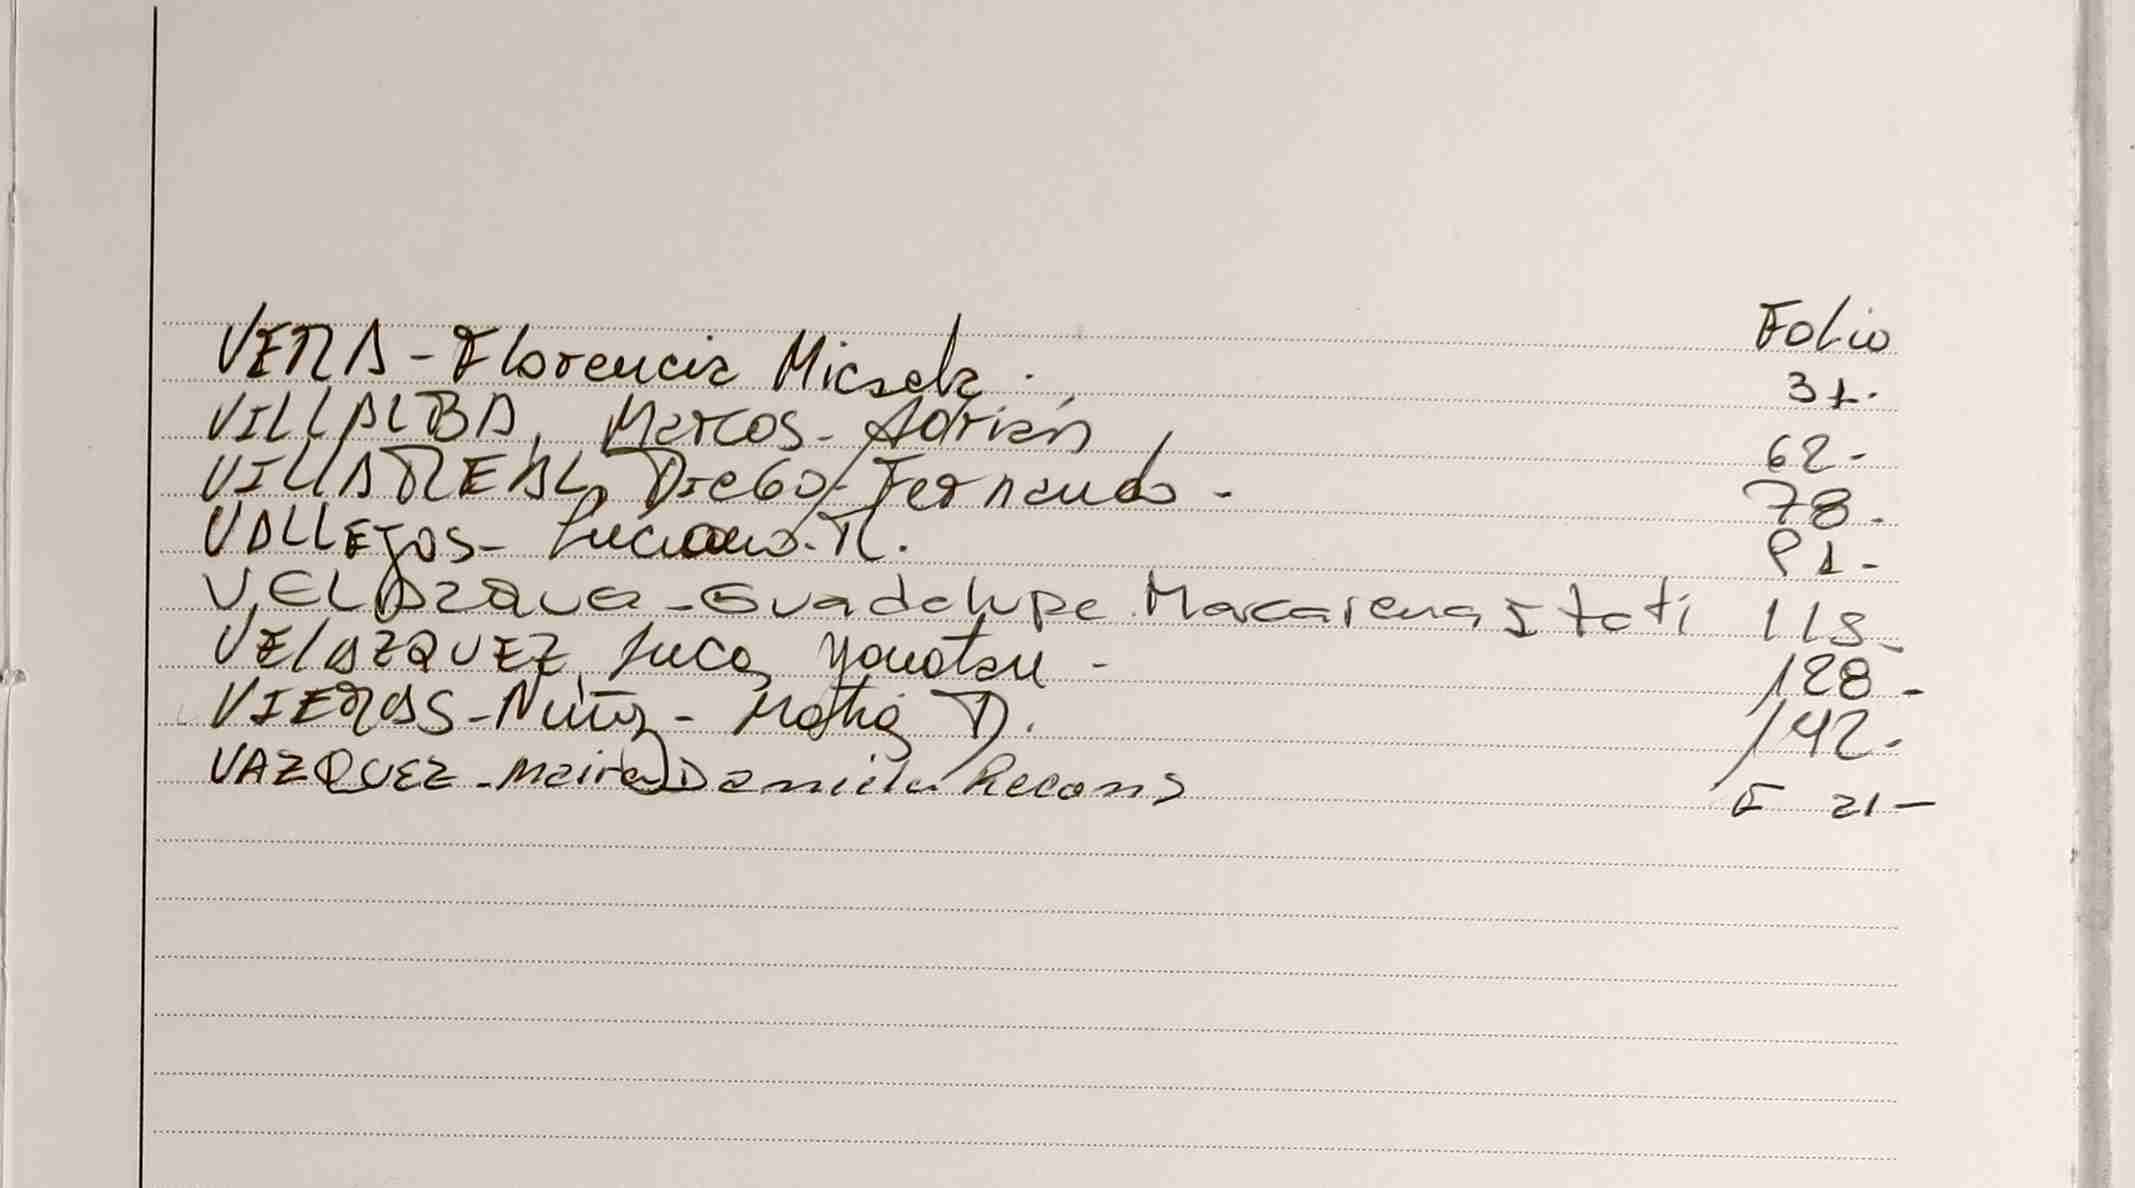 Folio
VERA - Florencia Micaela . 31.
VILLALBA, Marcos - Adrián 62 -
VILLARREAL, Diego - Fernando - 78 -
VALLEJOS - Luciano R. 91 -
VELAZQUEZ - Guadelupe Macarena Itati 115 -
VELAZQUEZ, Luca Yonatan - 128 -
VIERAS - Nuñez - Matias D. 142 -
VAZQUEZ - Maira Daniela F 21 -